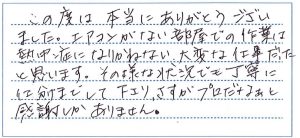 この度は本当にありがとうござい
ました。エアコンがない部屋での作業は
熱中症になりかねない大変な仕事だった
と思います。その様な状況でも丁寧に
仕分けまでして下さり、さすがプロだなぁと
感謝しかありません。